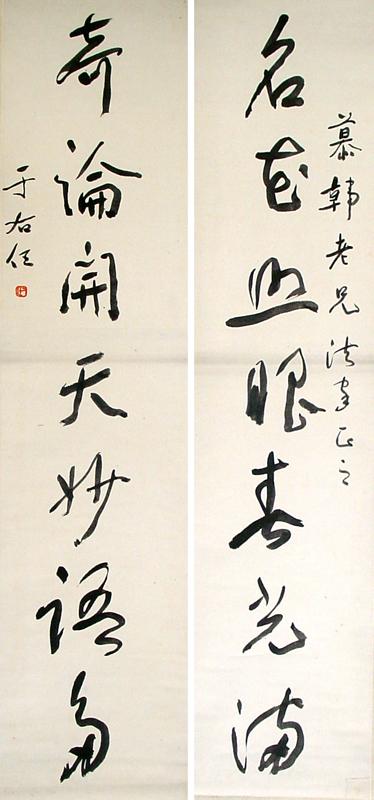 慕韓老兄法家正之
名花照眼春光滿
奇論開天妙語多
于右任